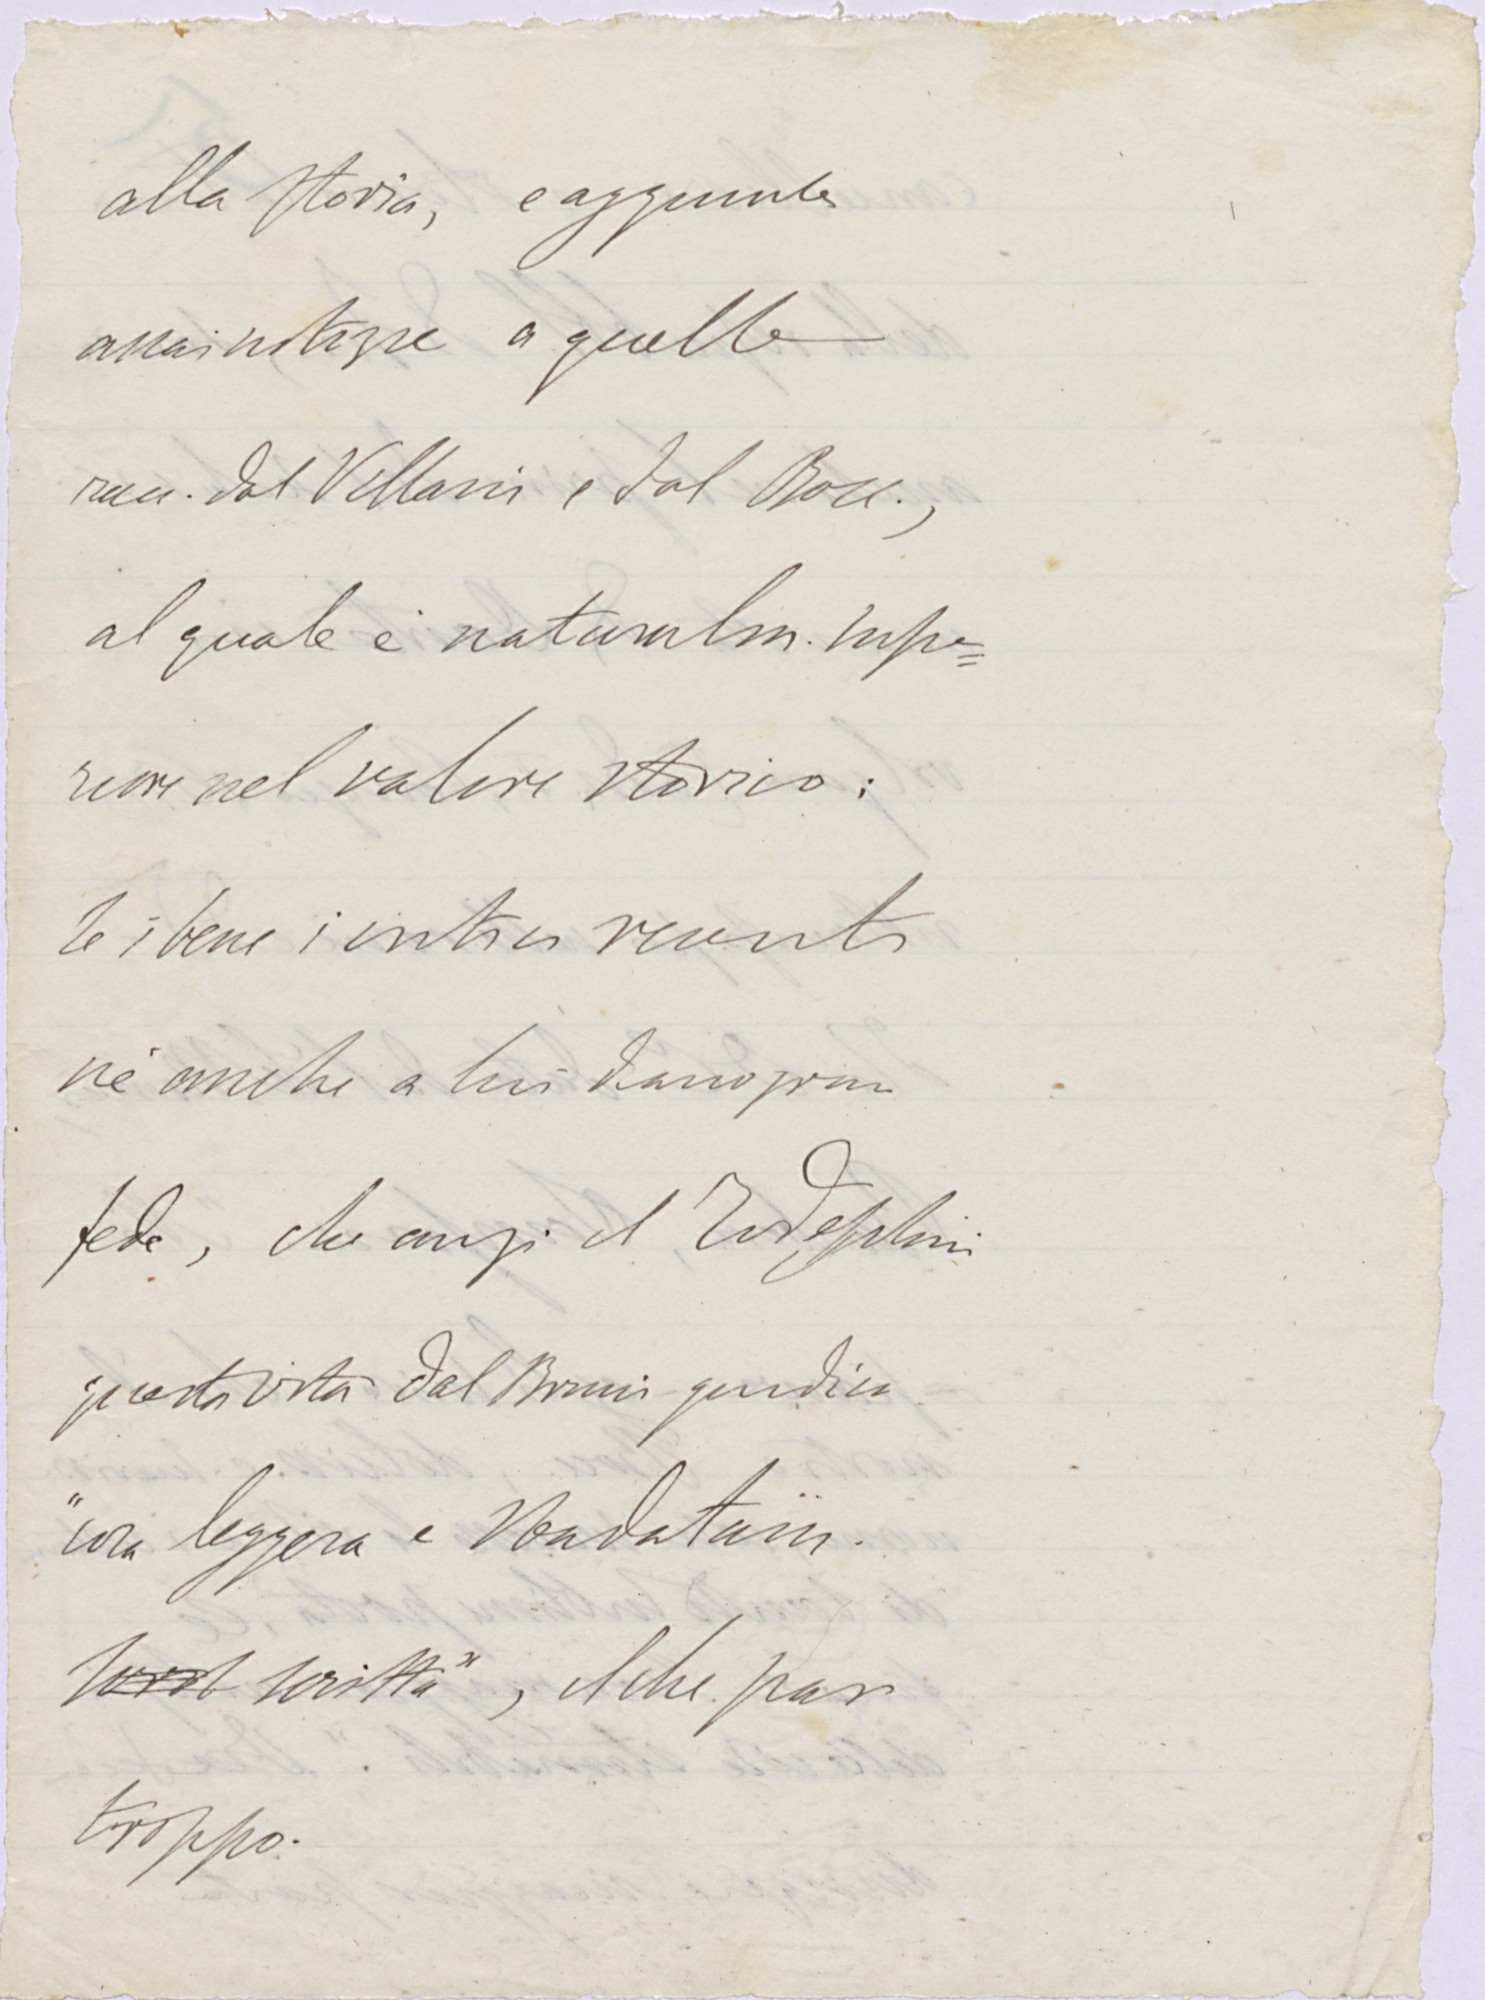 alla storia, e aggiunte
assai notizie a quelle
racc. dal Villani e dal Bocc.,
al quale è naturalm. supe=
riore nel valore storico:
se i bene i critici recenti
né anche a lui diano gran
fede, che anzi il Todeschini
questa vita dal Bruni giudica
"cosa leggera e sbadatam.
scritta", il che par
troppo.